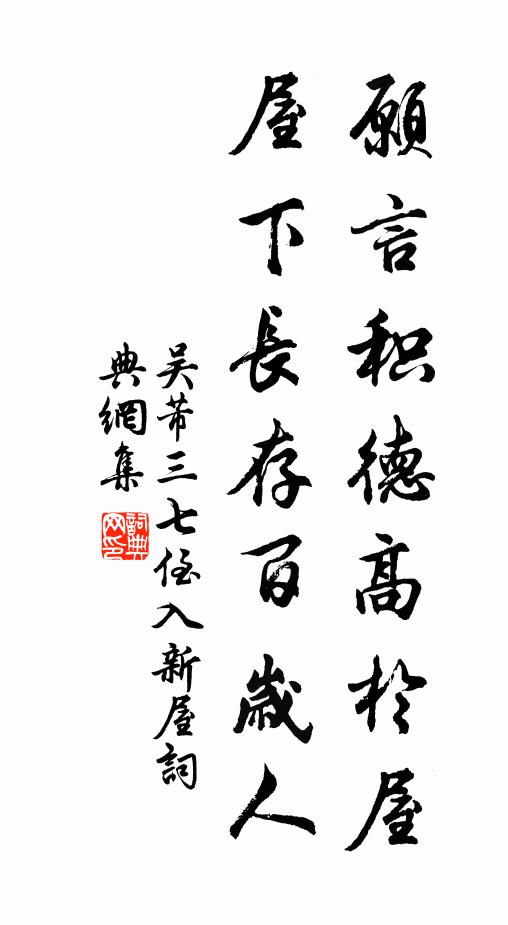 願言积德高於屋
屋下長存百歲人
吴芾三七侄入新屋詞
典網集
詞典
网印